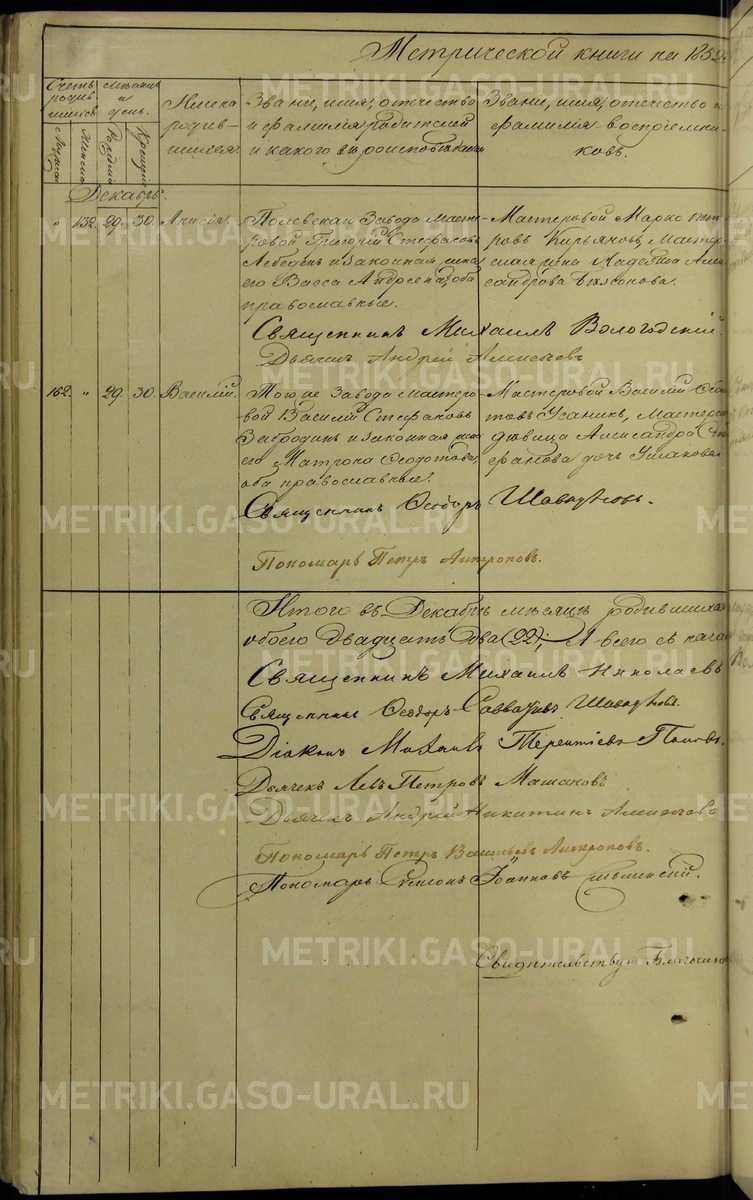 Метрической книги на 1852
Счетъ родив- шихся
Мѣсяцъ и день.
Имена родив- шихся
Званiе, имя, отечество и фамилiя родителей и какого вѣроисповѣданiя
Званiе, имя, отечество и фамилiя воспрiемни- ковъ.
Мужеска
Женска
Рожденiя
Крещенiя
Декабрь.
" 132. 29. 30. Анисiя.
Полевскаго Завода Масте-
ровой Григорiй Стефановъ
Лебедевъ и законная жена
его Васса Андреева, оба
православные.
Мастеровой Марко Пет-
ровъ Кирьяновъ, Мастер-
ская жена Алек-
сандрова
Священникъ Михаилъ Вологодскiй.
Дьячекъ Андрей Алексѣевъ
162. " 29. 30. Василiй.
Тогоже Завода Мастеро-
вой Василiй Стефановъ
Забродинъ и законная жена
его Матрона Ѳеодотова,
оба православные.
Мастеровой Василiй Ѳедо-
товъ Мастерск
дѣвица Александра Сте
фанова дочь Ушакова
Священникъ Ѳеодоръ
Пономарь Петръ Антроповъ.
Итого въ Декабрѣ мѣсяцѣ родившихся
обоего двадцать два (22); А всего съ нача
Священникъ Михаилъ Николаевъ
Священникъ Ѳеодоръ
Дiаконъ Михаилъ Терентiевъ Поповъ.
Дьячекъ Левъ Петровъ Машановъ
Дьячекъ Андрей Никитинъ Алексѣевъ
Пономарь Петръ Васильевъ Антроповъ.
Пономарь Iоанновъ
Свидѣтельствую Благочин
METRIKI.GASO-URAL.RU